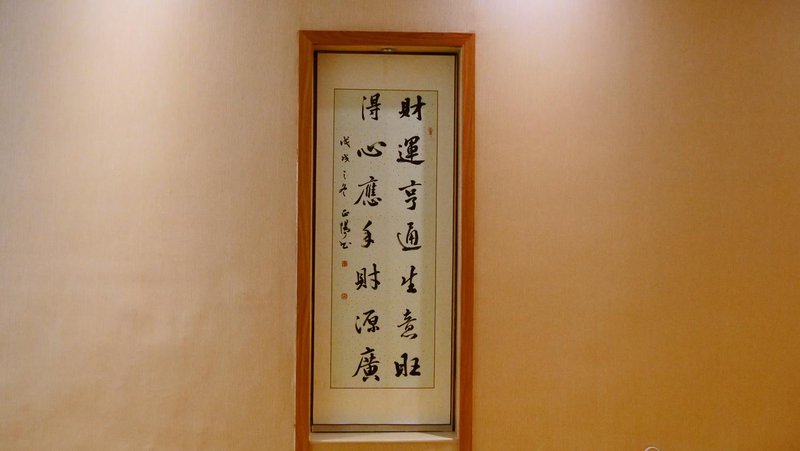 財運亨通生意旺
得心應手財源廣
戊戌之冬 正陽書